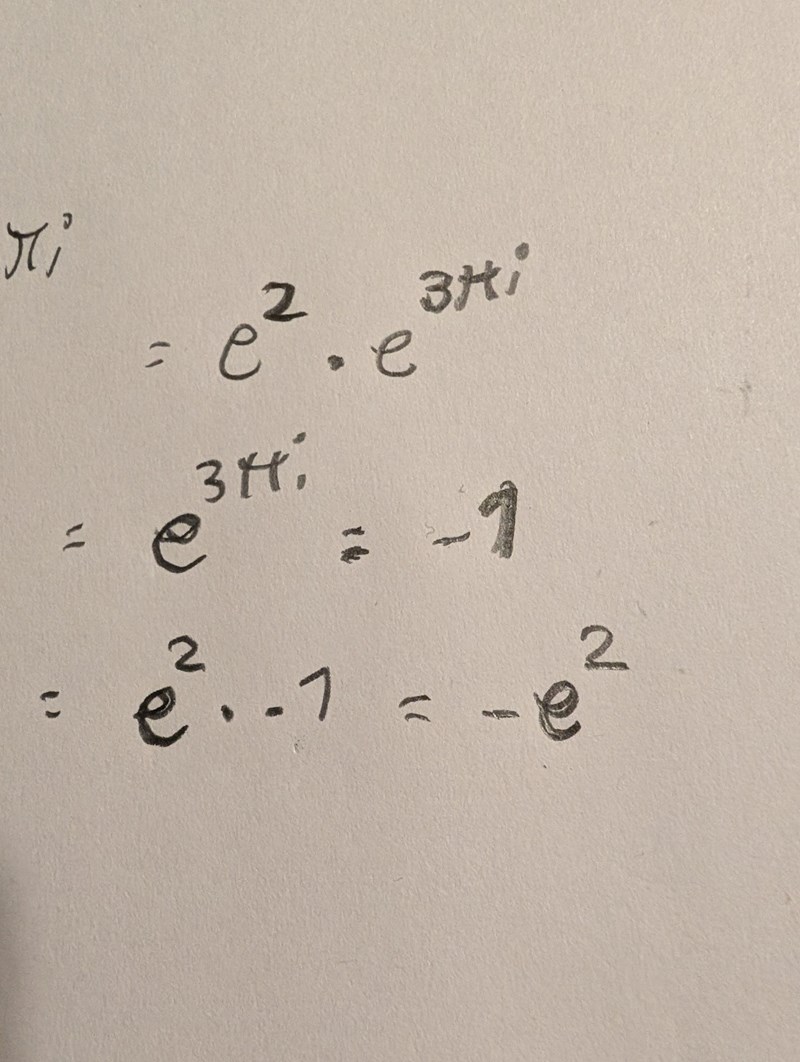 πi
= e^2 · e^3πi
= e^3πi = -1
= e^2 · -1 = -e^2